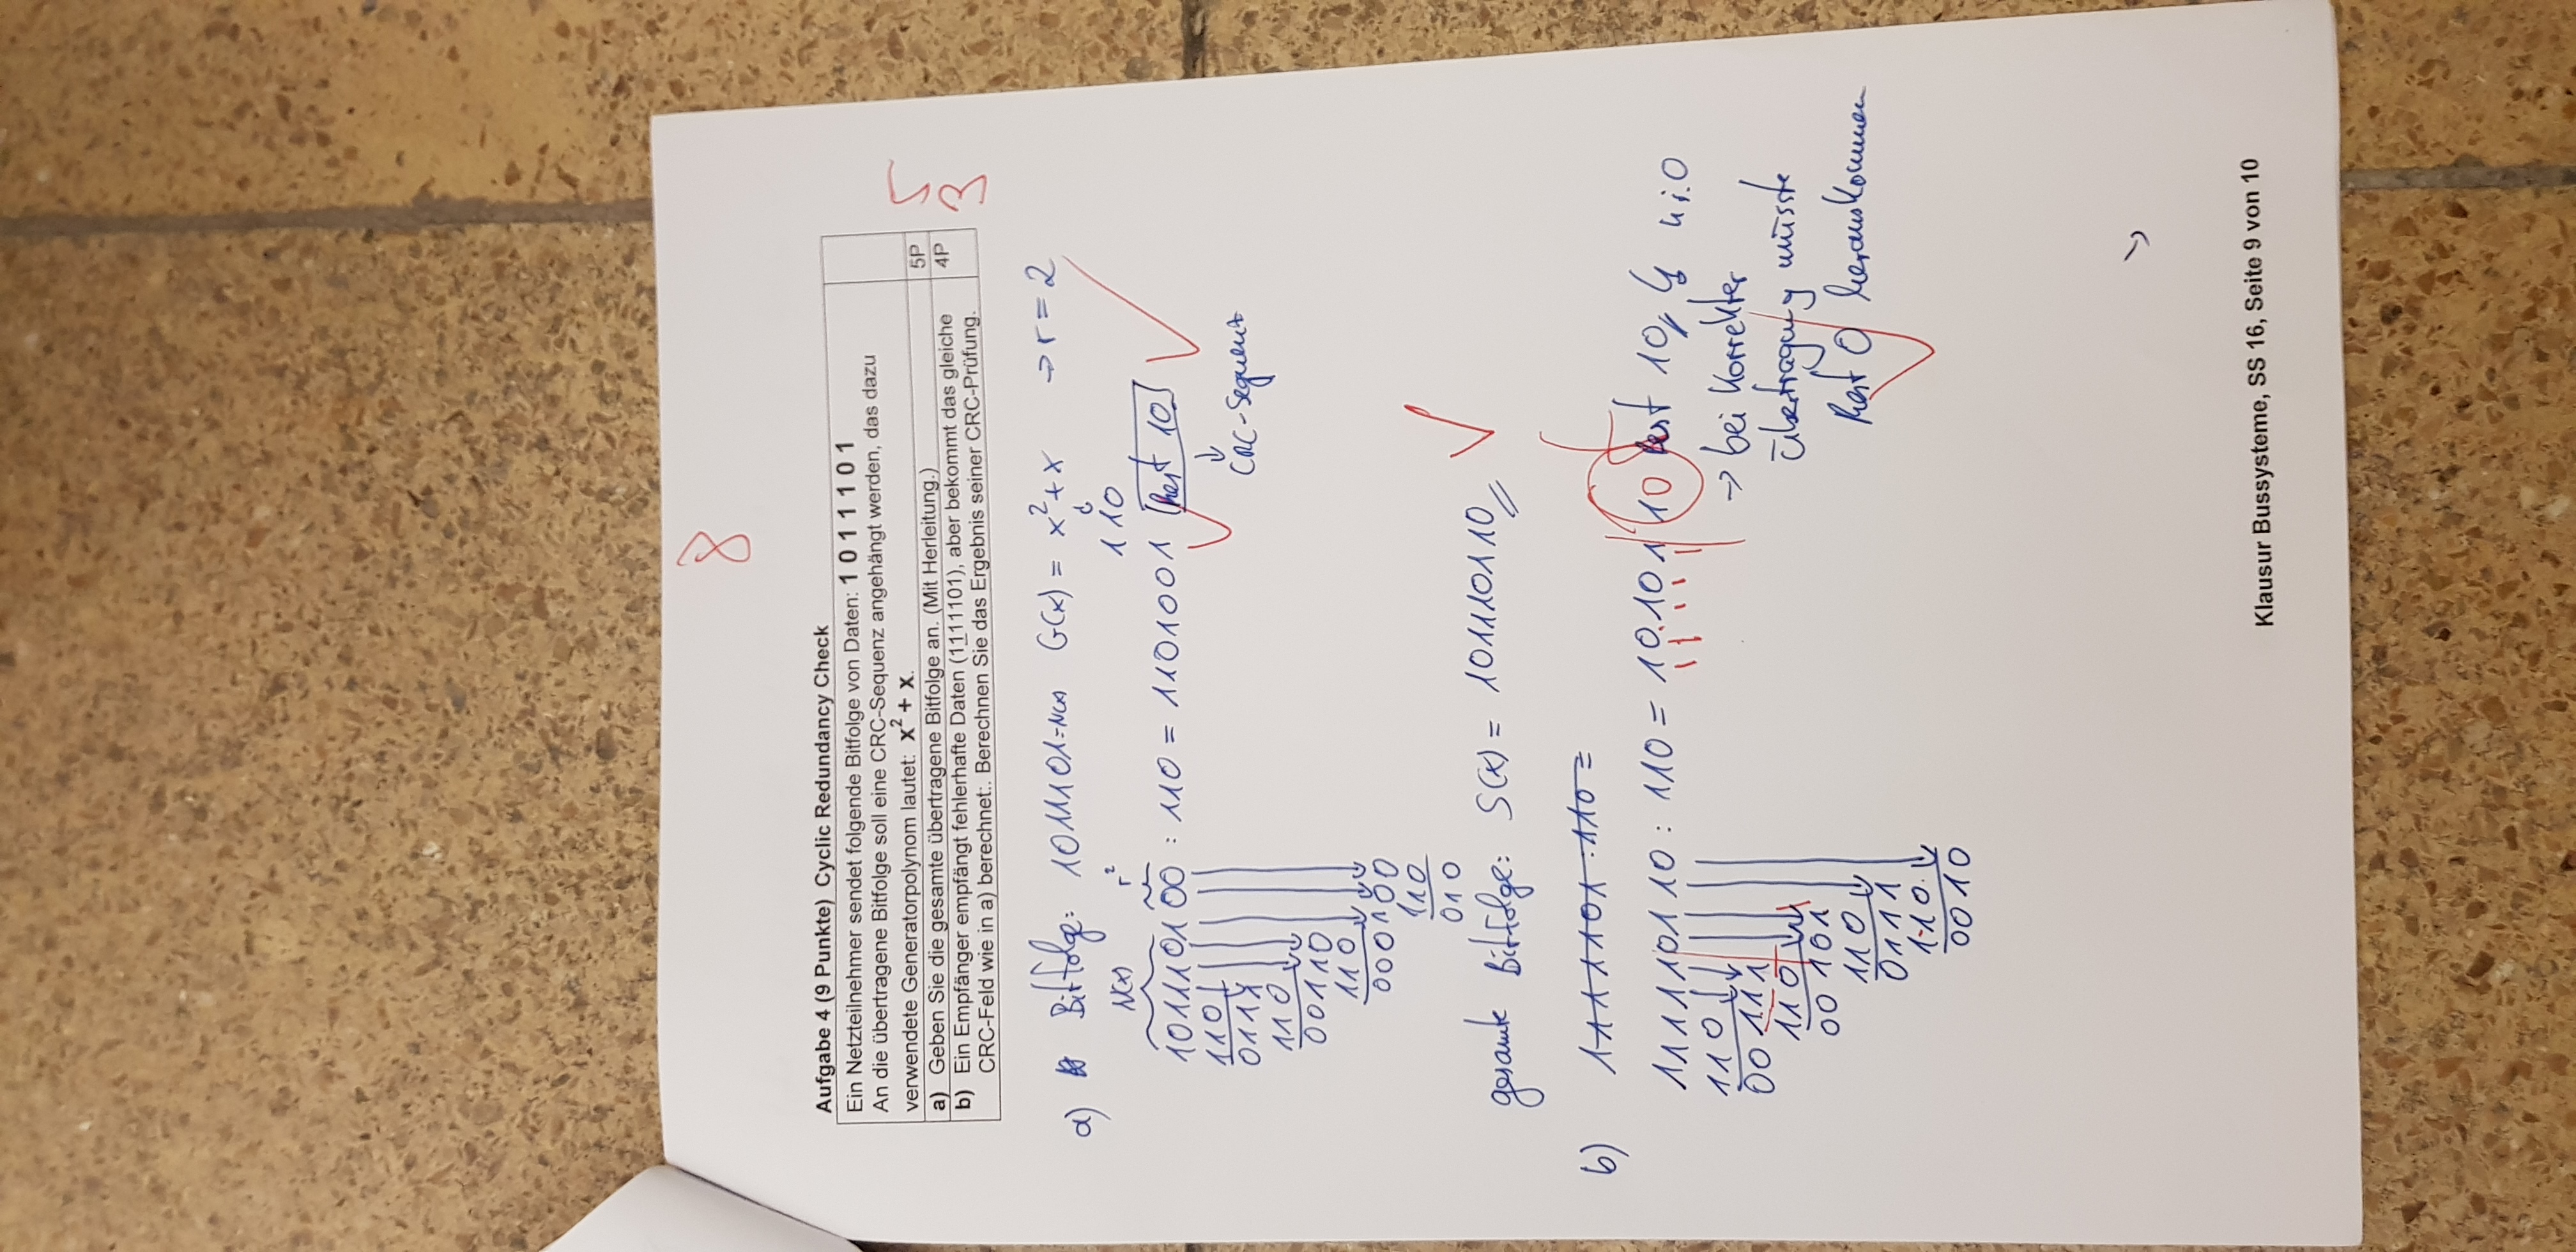 8
Aufgabe 4 (9 Punkte) Cyclic Redundancy Check
Ein Netzteilnehmer sendet folgende Bitfolge von Daten: 1 0 1 1 1 0 1
An die übertragene Bitfolge soll eine CRC-Sequenz angehängt werden, das dazu
verwendete Generatorpolynom lautet: x² + x.
a) Geben Sie die gesamte übertragene Bitfolge an. (Mit Herleitung.) 5P 5
b) Ein Empfänger empfängt fehlerhafte Daten (1111101), aber bekommt das gleiche 4P 3
CRC-Feld wie in a) berechnet:. Berechnen Sie das Ergebnis seiner CRC-Prüfung.
a) Bitfolge: 1011101=N(x) G(x) = x²+x → r = 2
110
N(x) r²
101110100 : 110 = 1101001 Rest 10
110
CRC-Sequenz
0111
110
00110
110
000100
110
010
gesamte Bitfolge: S(x) = 101110110
b) 1111101 : 110 =
111110110 : 110 = 10101 10 Rest 10 n.i.O
110
→ bei Korrekter
00111
110
Übertragung müsste
00101
Rest 0 herauskommen
110
0111
110
0010
Klausur Bussysteme, SS 16, Seite 9 von 10